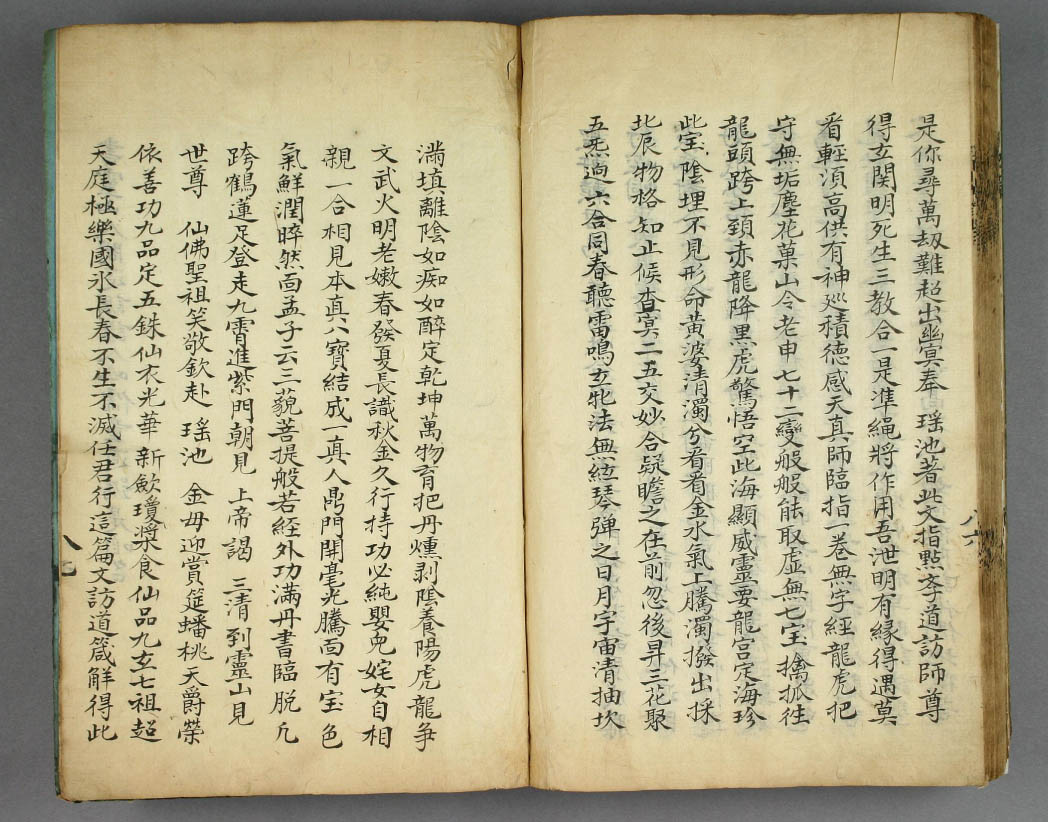 是你尋萬劫難超出幽冥奉 瑤池著此文指點孝道訪師尊
得玄関明死生三教合一是準繩將作用吾泄明有緣得遇莫
看輕湏高供有神廵積德感天真師臨指一卷無字經龍虎把
守無垢塵花菓山令老申七十二變般般能取虛無七宝擒孤徃
龍頭跨上頸赤龍降黒虎驚悟空此海顯威靈要龍宫定海珍
此宝陰埋不見形命黃婆清濁兮看看金水氣上騰濁撥出採
北辰物格知止候杳冥二五交妙合疑瞻之在前忽後昇三花聚
五炁逈六合同春聽雷鳴玄牝法無絃琴弹之日月宇宙清抽坎
八六
滿填離陰如痴如醉定乾坤萬物育把丹爐剥陰養陽虎龍爭
文武火明老嫩春發夏長識秋金久行持功必純嬰兒姹女自相
親一合相見本真八寶結成一真人鼎門開毫光騰面有宝色
氣鮮潤睟然面孟子云三藐菩提般若經外功滿丹書臨脱凡
跨鶴蓮足登走九霄進紫門朝見 上帝謁 三清到靈山見
世尊 仙佛聖祖笑敬欽赴 瑤池 金母迎賞筵蟠桃天爵榮
依善功九品定五銖仙衣光華 新飲瓊漿食仙品九玄七祖超
天庭極樂國永長春不生不滅任君行這篇文訪道箴解得此
八七